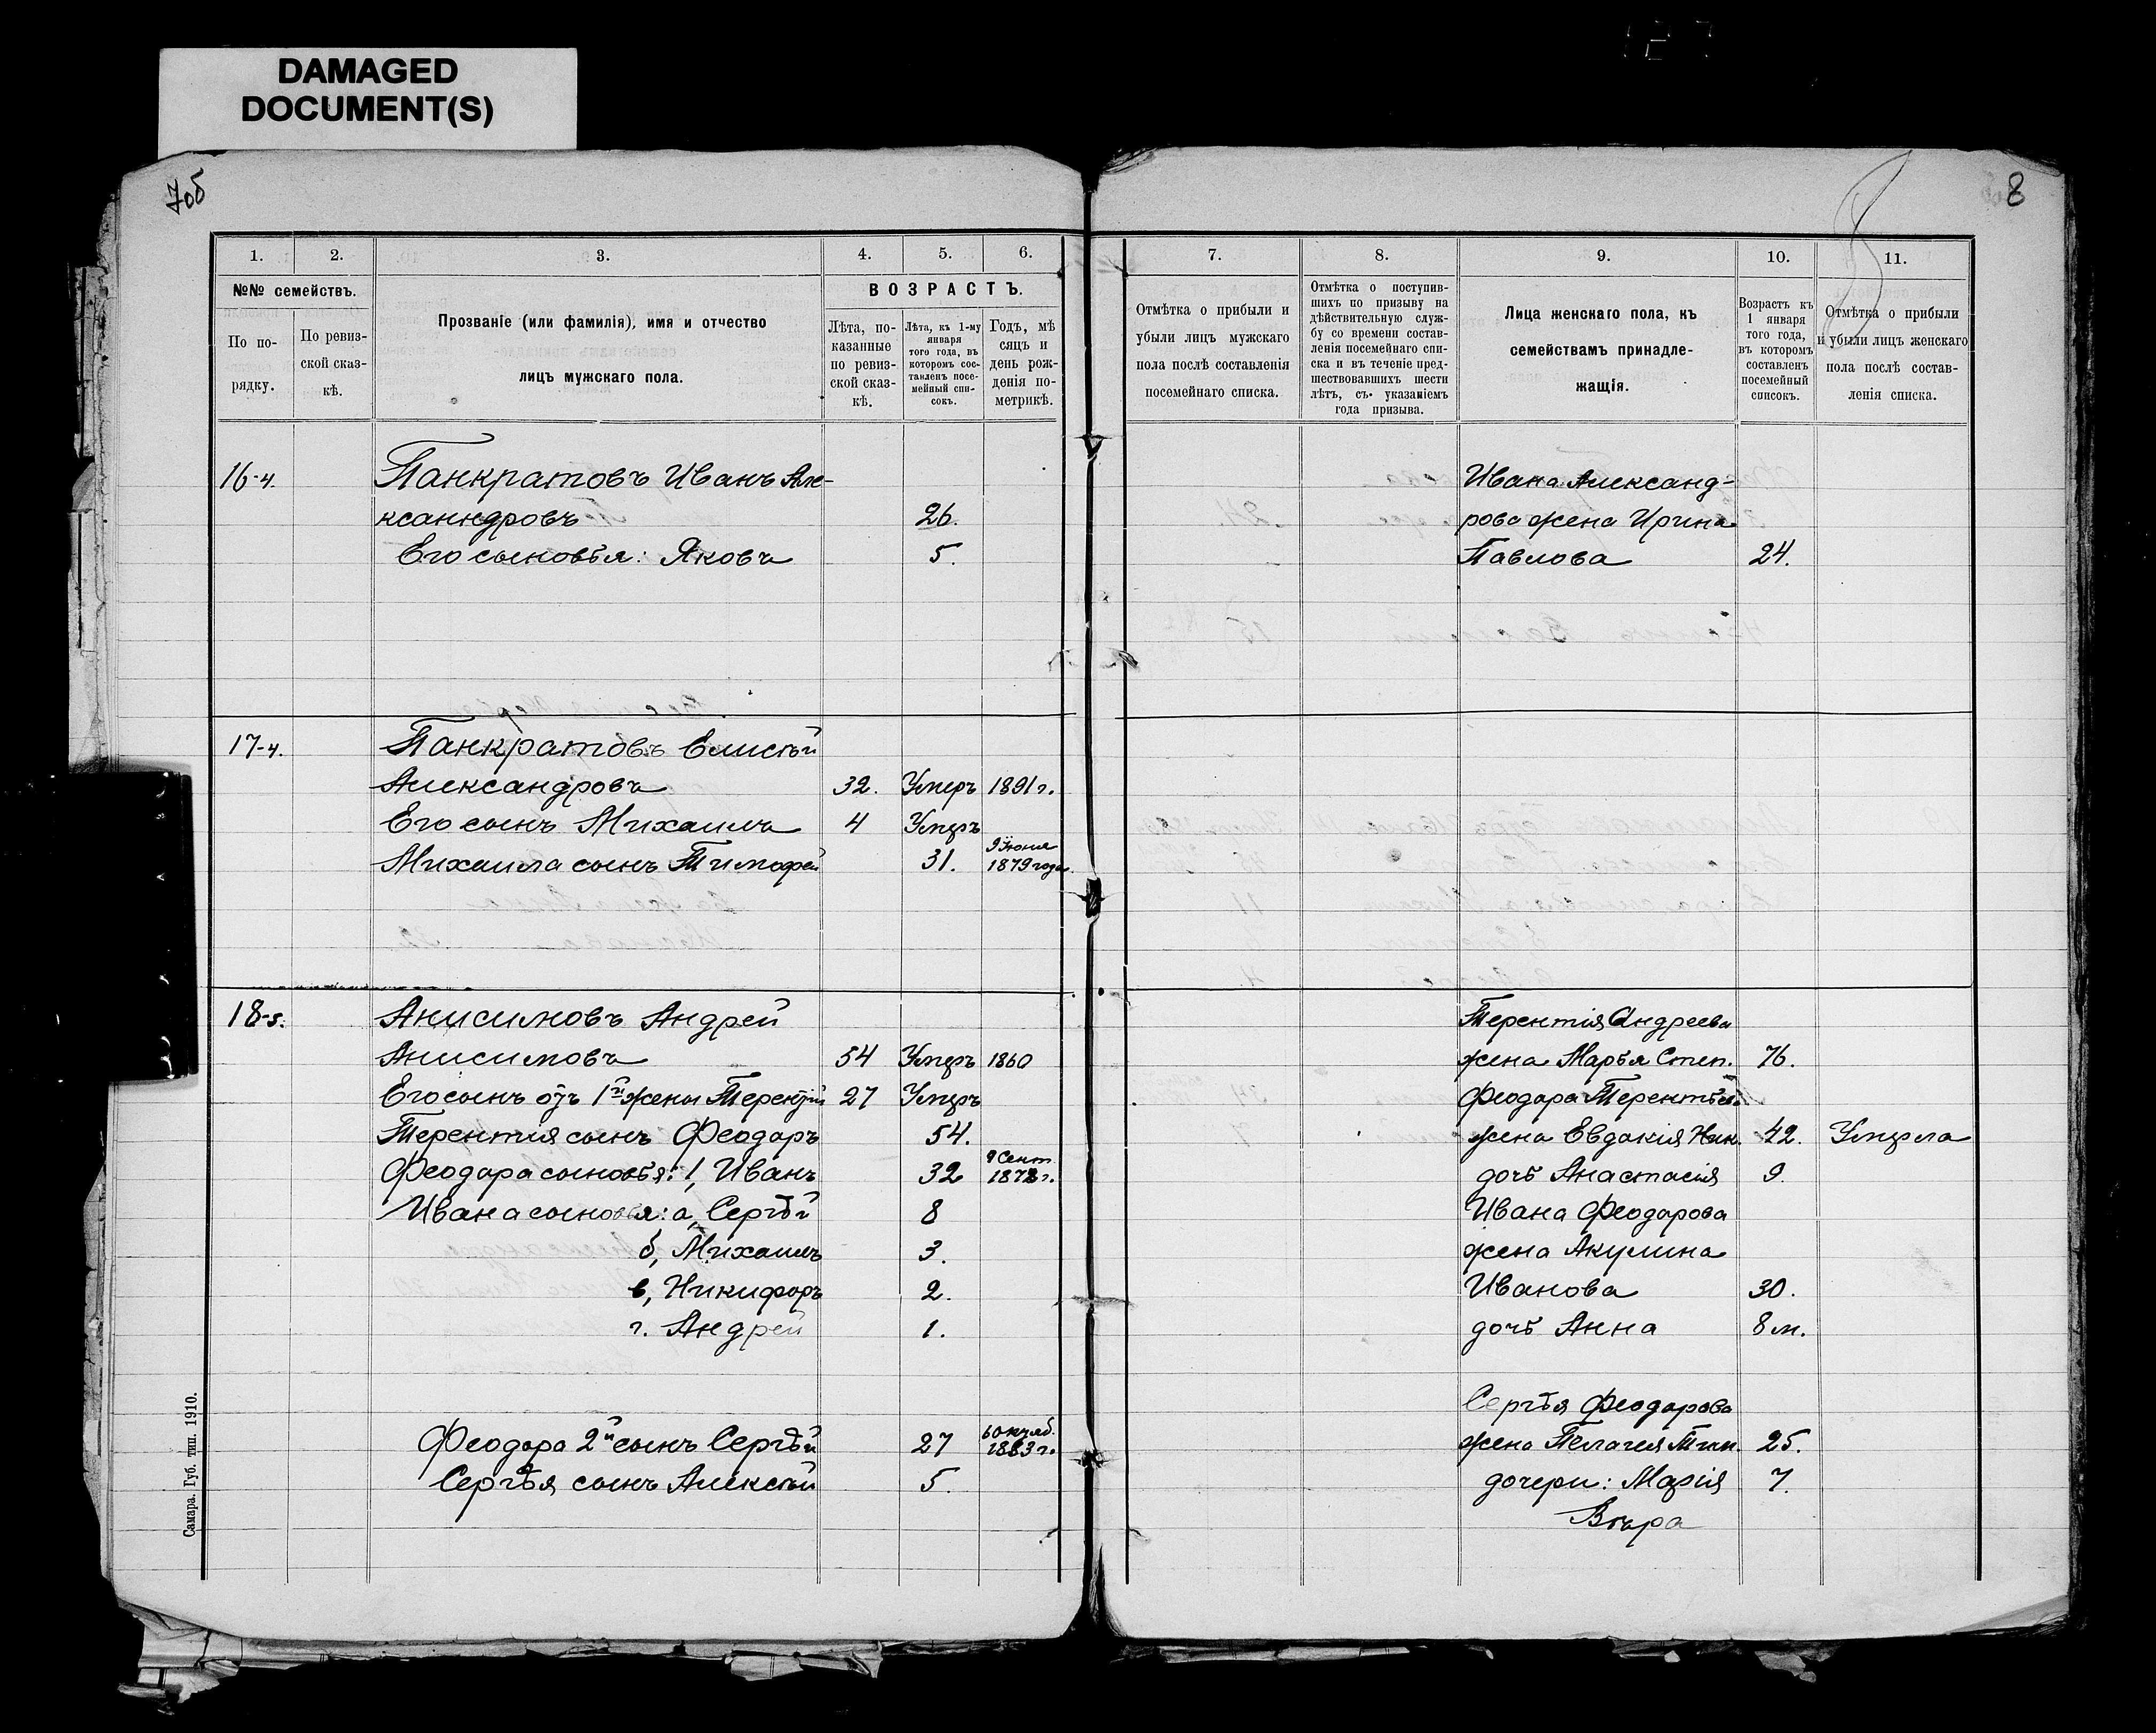 DAMAGED
DOCUMENT(S)
7об
1. 2. 3. 4. 5. 6.
№№ семействъ.
По по-
рядку.
По ревиз-
ской сказ-
кѣ.
Прозваніе (или фамилія), имя и отчество
лицъ мужскаго пола.
ВОЗРАСТЪ.
Лѣта, по-
казанные
по ревиз-
ской сказ-
кѣ.
Лѣта, къ 1-му
января
того года, въ
которомъ сос-
тавленъ посе-
мейный спи-
сокъ.
Годъ, мѣ
сяцъ и
день рож-
денія по-
метрикѣ.
16-4. Панкратовъ Иванъ Але-
ксандровъ 26.
Его сыновья: Яковъ 5.
17-4. Панкратовъ Елисѣй
Александровъ 32. Умеръ 1891 г.
Его сынъ Михаилъ 4 Умеръ
9 Іюня
Михаила сынъ Тимофей 31. 1879 года.
18-5. Анисимовъ Андрей
Анисимовъ 54 Умеръ 1860
Его сынъ отъ 1й жены Терентій 27 Умеръ
Терентия сынъ Феодоръ 54.
9 Сент.
Феодора сыновья: 1, Иванъ 32 1878 г.
Ивана сыновья: а, Сергѣй 8
б, Михаилъ 3.
в, Никифоръ 2.
г. Андрей 1.
6 октяб.
Феодора 2й сынъ Сергѣй 27 1883 г.
Сергѣя сынъ Алексѣй 5.
Самара. Губ. тип. 1910.
8
8
7. 8. 9. 10. 11.
Отмѣтка о прибыли и
убыли лицъ мужскаго
пола послѣ составленія
посемейнаго списка.
Отмѣтка о поступив-
шихъ по призыву на
дѣйствительную служ-
бу со времени состав-
ленія посемейнаго спи-
ска и въ теченіе пред-
шествовавшихъ шести
лѣтъ, съ указаніемъ
года призыва.
Лица женскаго пола, къ
семействамъ принадле-
жащія.
Возрастъ къ
1 января
того года,
въ которомъ
составленъ
посемейный
списокъ.
Отмѣтка о прибыли
и убыли лицъ женскаго
пола послѣ состав-
ленія списка.
Ивана Александ-
рова жена Ирина
Павлова 24.
Терентія Андреева
жена Марья Степ. 76.
Феодора Терентьев.
жена Евдокія Ник. 42. Умерла
дочь Анастасія 9.
Ивана Феодорова
жена Акулина
Иванова 30.
дочь Анна 8 м.
Сергѣя Феодорова
жена Пелагея Тим. 25.
дочери: Марія 7.
Вѣра